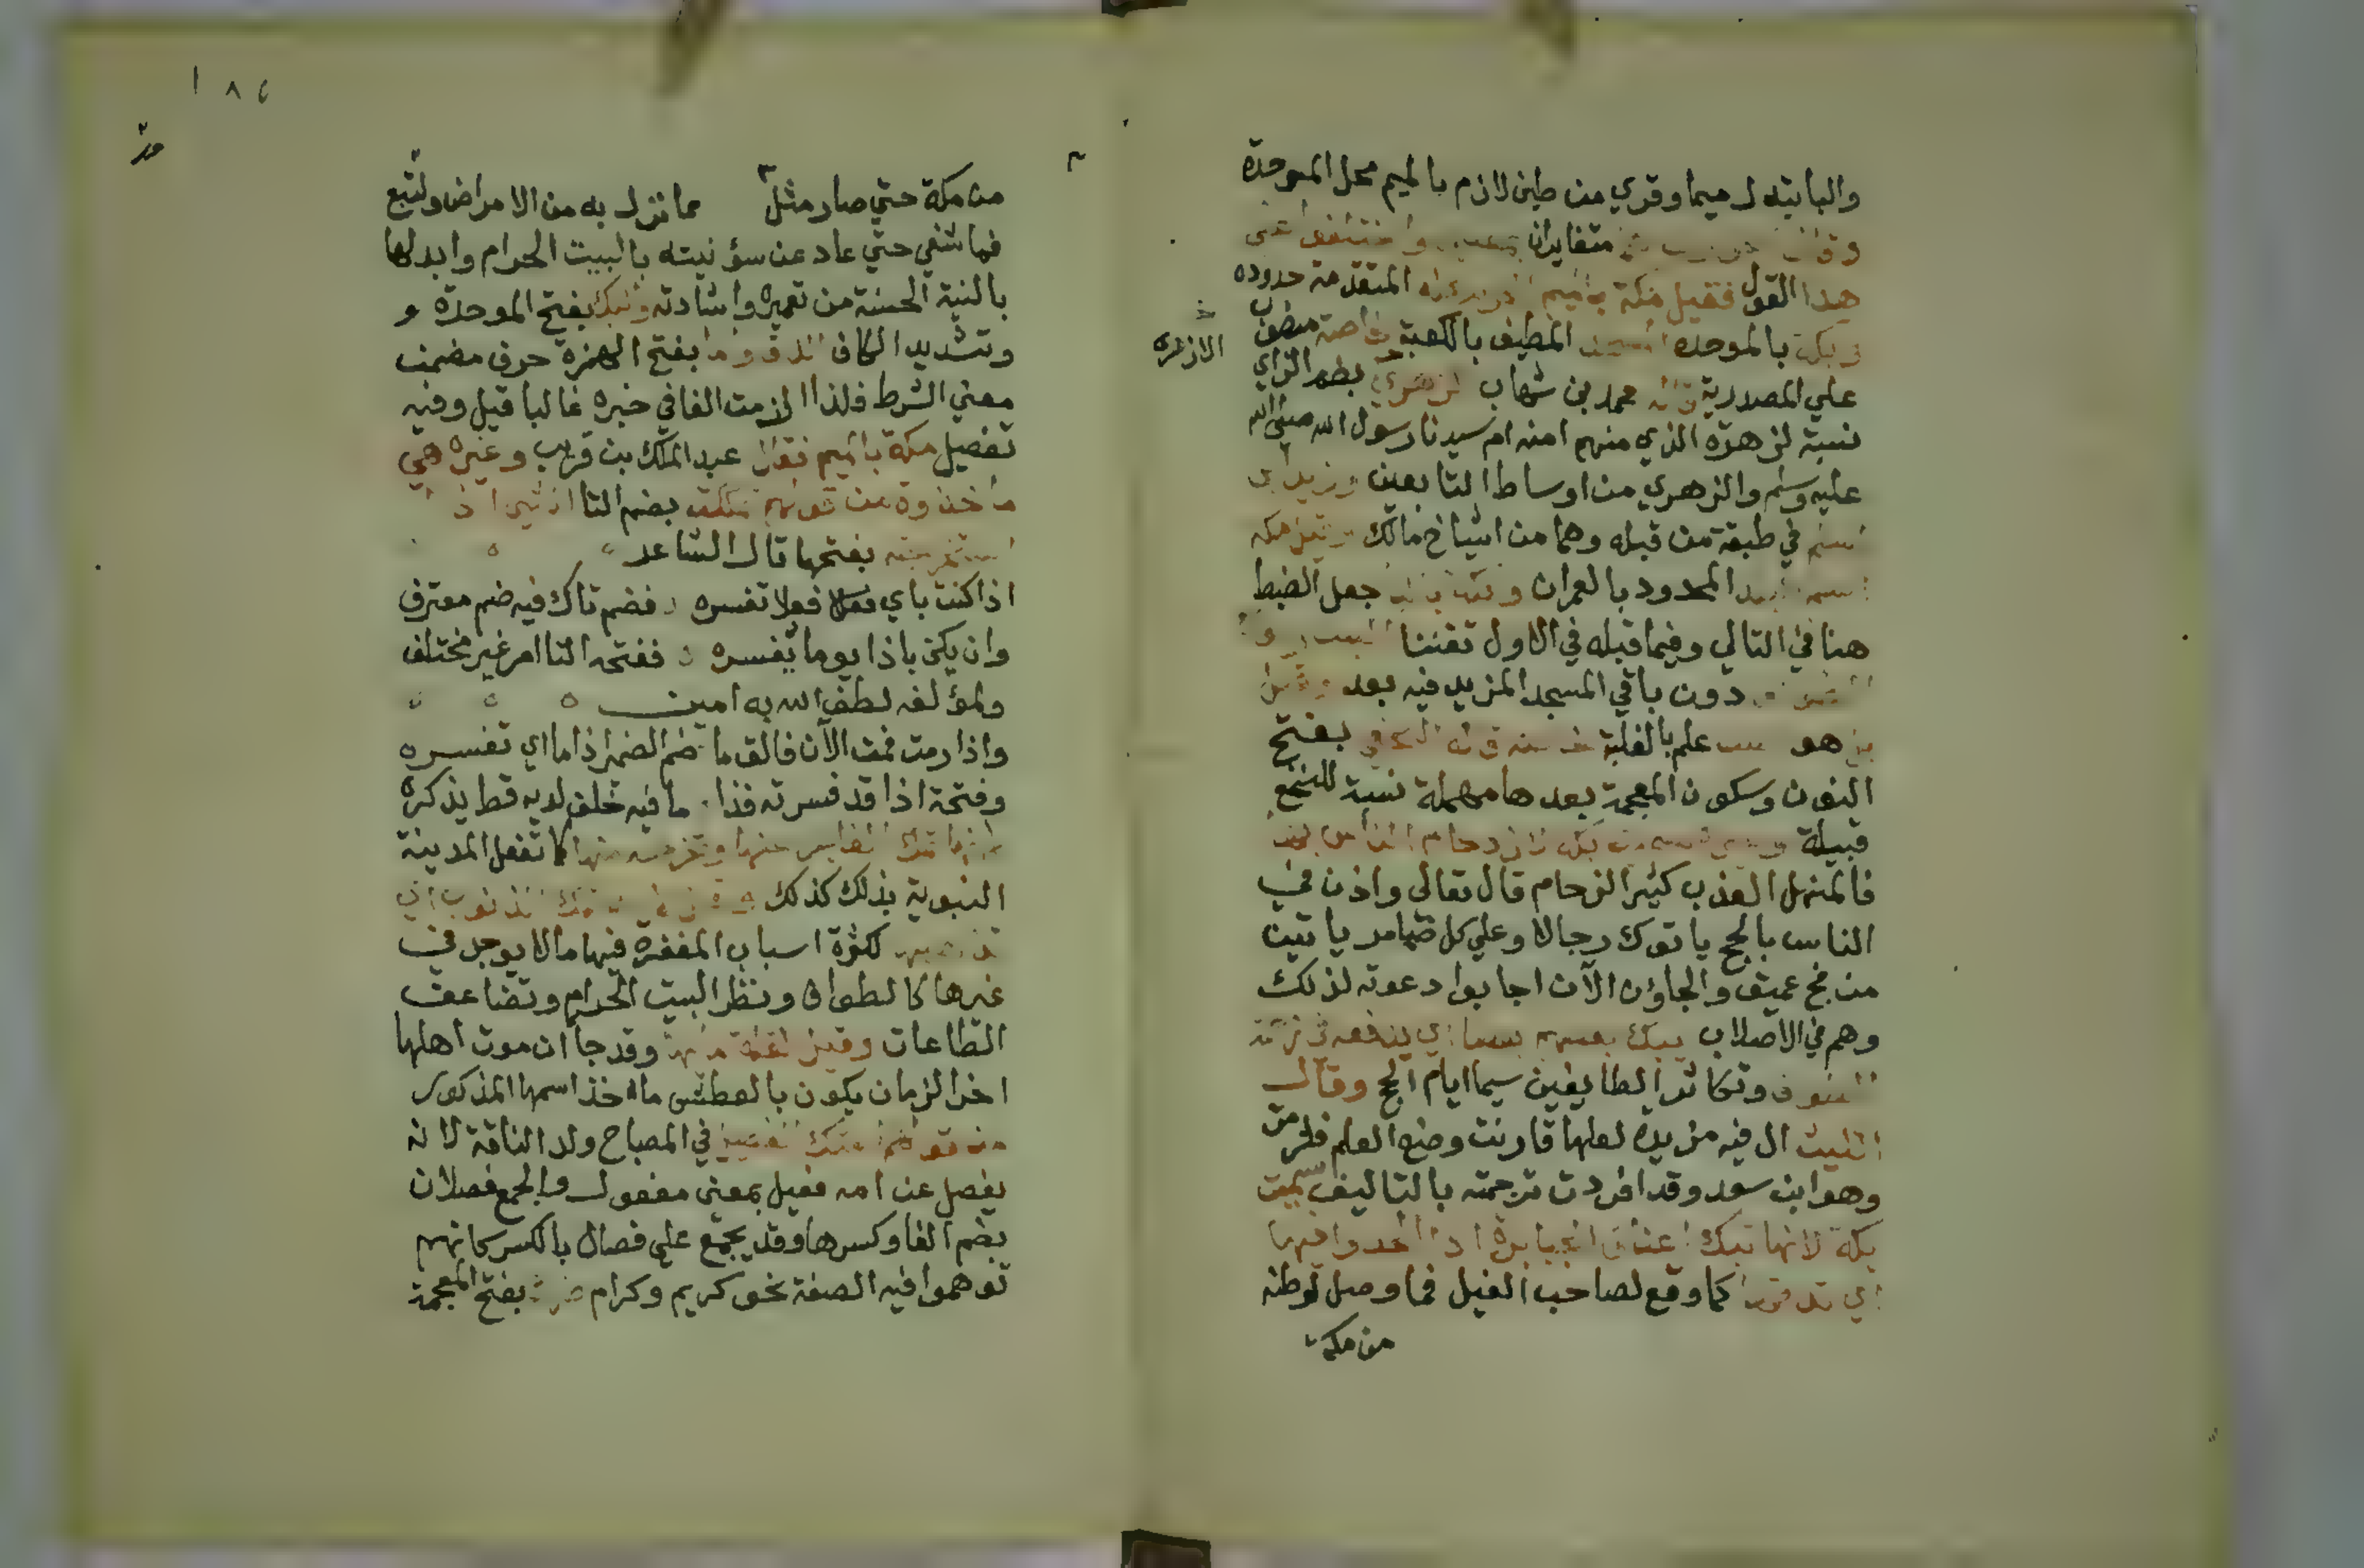 والبا تبدل ميما وقري من طين لازم بالميم محل الموحدة
متغايران واختلفوا على
هذا القول فقيل مكة بالميم المتقدمة حدوده
وبكة بالموحدة المسجد المطيف بالكعبة خاصة منصوب
علي المصدرية قاله محمد بن شهاب الزهري بضم الزاي
الازهرة
نسبة لزهرة الذي منهم امنه ام سيدنا رسول الله صلي الله
عليه وسلم والزهري من اوساط التابعين وزيد ابن
اسلم في طبقة من قبله وهما من اشياخ مالك وقيل مكه
اسم البلد المحدود بالعمران وبكة جعل الضبط
هنا في التالي وفيما قبله في الاول تفننا البيت و
دون باقي المسجد المزيد فيه بعد وقيل
هو علم بالغلبة قاله النخعي بفتح
النون وسكون المعجمة بعدها مهملة نسبة للنخع
قبيلة بكة لازدحام الناس بها
فالمنهل العذب كثير الزحام قال تعالي واذن في
الناس بالحج ياتوك رجالا وعلي كل ضامر ياتين
من فج عميق والجاؤن الآن اجابوا دعوته لذلك
وهم في الاصلاب يبك بعضهم بعضا اي يدفعه في زحمة
الطواف وتكاثر الطايفين سيما ايام الحج وقال
الليث ال فيه مزيدة لعلها قارنت وضع العلم فلزمت
وهو ابن سعد وقد افردت ترجمته بالتاليف سميت
بكة لانها تبك اعناق الجبابرة اذا الحدوا فيها
اي تدقها كما وقع لصاحب الفيل فما وصل لوطنه
من مكة
١٨٤
من مكة حتي صار مثل مما نزل به من الامراض ولتبع
فما شفي حتي عاد عن سؤ نيته بالبيت الحرام وابدلها
بالنية الحسنة من تعميره واشادته والبك بفتح الموحدة و
وتشديد الكاف الدق واما بفتح الهمزة حرف مضمن
معني الشرط فلذا لزمت الفا في خبره غالبا قيل وفيه
تفصيل مكة بالميم فقال عبد الملك بن قريب وغيره هي
ماخذوة من قولهم تمككت بضم التا الشي اذا
استخرجته بفتحها قال الشاعر
اذا كنت باي فعلا فعلا تفسره فضم تاك فيه ضم معترف
وان يكن باذا يوما تفسره ففتحه التا امر غير مختلف
ولمؤلفه لطف الله به امين
واذا رمت فمت الآن فالق ما ضم الضمير اذا ما اي تفسره
وفتحة اذا قد فسرته فذا ما فيه خلف لديه قط يذكره
عنها وتخرجه منها كما تفعل المدينة
النبوية بذلك كذلك تمك الذنوب اي
تذهبها لكثرة اسباب المغفرة فيها ما لا يوجد في
غيرها كالطواف ونظر البيت الحرام وتضاعف
الطاعات وقيل لقلة مائها وقد جا ان موت اهلها
اخر الزمان يكون بالعطش ماخذ اسمها المذكور
من قولهم امتك الفصيل في المصباح ولد الناقة لانه
يفصل عن امه فعيل بمعني مفعول والجمع فصلان
بضم الفا وكسرها وقد يجمع علي فصال بالكسر كانهم
توهموا فيه الصفة نحو كريم وكرام بفتح المعجمة